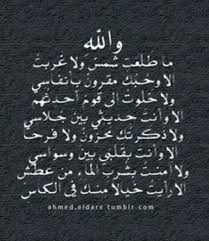 والله
ما طلعت شمسٌ ولا غربت
الا وحبّك مقرون بأنفاسي
ولا خلوتُ إلى قوم أحدثهم
الا وأنت حديثي بين جلاسي
ولا ذكرتك محزونًا ولا فرحا
الا وأنت بقلبي بين وسواسي
ولا هممت بشرب الماء من عطش
الا رأيت خيالا منك في الكأس
ahmed.eldars tumblr.com